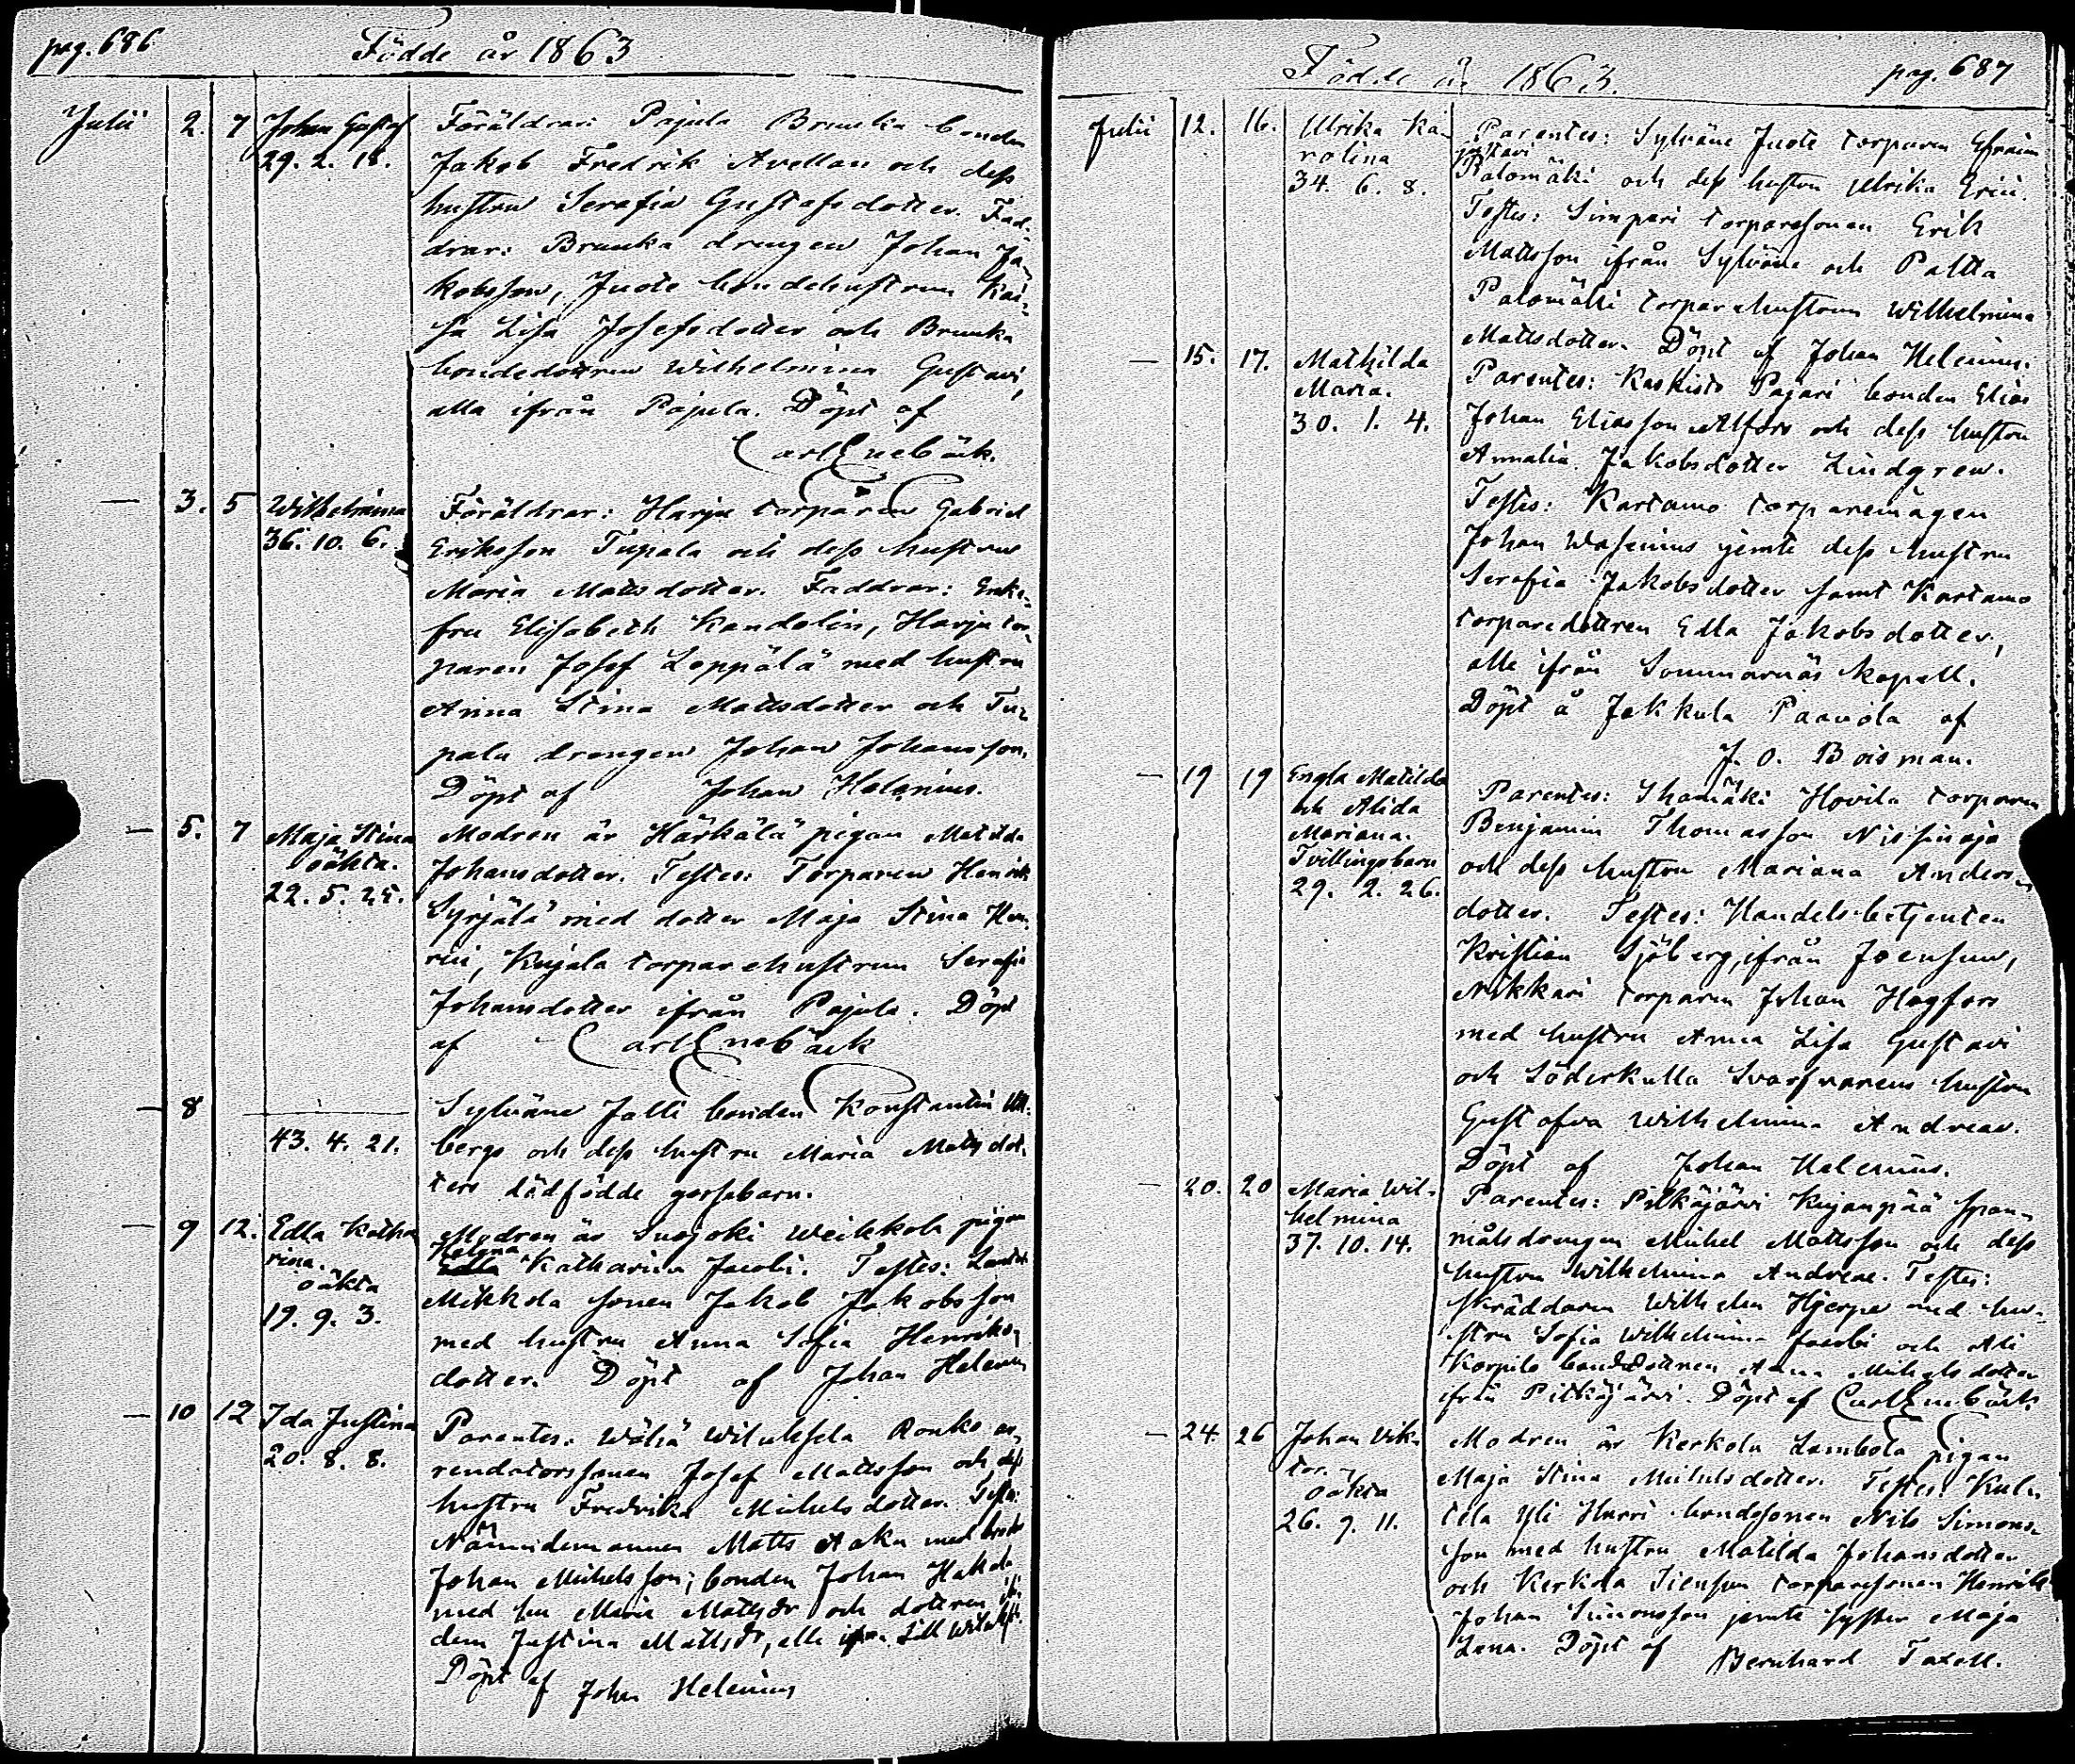 pag. 686
Födde år 1863
Julii 2. 7 Johan Gustaf Föräldrar: Pajula Bruuka bonden
29. 2. 18. Jakob Fredrik Avellan och dess
hustru Serafia Gustafsdotter. Fad-
drar: Bruuka drengen Johan Ja-
kobsson, Juote bondehustrun Kai-
sa Lisa Josefsdotter och Bruuka
bondedottren Wilhelmina Gustavi,
alla ifrån Pajula. Döpt af
Carl Enebäck.
— 3. 5 Wilhelmina Föräldrar: Harju torparen Gabriel
36. 10. 6. Eriksson Tupala och dess hustru
Maria Mattsdotter. Faddrar: Enke-
fru Elisabeth Kandolin, Harju tor-
paren Josef Leppälä med hustru
Anna Stina Mattsdotter och Tu-
pala drengen Johan Johansson.
Döpt af Johan Helenius.
— 5. 7 Maja Stina Modren är Härkälä pigan Matilda
oäkta. Johansdotter. Testes: Torparen Henrik
22. 5. 25. Syrjälä med dotter Maja Stina Hen-
rici, Kujala torparehustrun Serafia
Johansdotter ifrån Pajula. Döpt
af Carl Enebäck
— 8 Sylväne Jalli bonden Konstantin
43. 4. 21. bergs och dess hustru Maria Mattsdot-
ters dödfödde gossebarn.
— 9 12. Edla Katha Modren är Suojoki Weikkola pigan
rina. Helena Katharina Jacobi. Testes:
oäkta Mikkola sonen Jakob Jakobsson
19. 9. 3. med hustru Anna Sofia Henriks-
dotter. Döpt af Johan Helenius
— 10 12 Ida Justina Parentes: Wähä Wiluksela Ronko ar-
20. 8. 8. rendatorssonen Josef Mattsson och dess
hustru Fredrika Michelsdotter. Testes:
Nämndemannen Matts Aaku med
Johan Michelsson; bonden Johan Hakala
med hu Maria Mattsdr och dottren
dem Justina Mattsdr, alla ifrån Lill
Döpt af Johan Helenius
Födde år 1863.
pag. 687
Julii 12. 16. Ulrika Ka- Parentes: Sylväne Juote torparen Efraim
rolina Gustavi
34. 6. 8. Palomäki och dess hustru Ulrika Erici.
Testes: Simpari torparesonen Erik
Mattsson ifrån Sylväne och Paltta
Palomäki torparehustrun Wilhelmina
Mattsdotter. Döpt af Johan Helenius.
— 15. 17. Mathilda Parentes: Kaskisto Pajari bonden Elias
Maria. Johan Eliasson Alfors och dess hustru
30. 1. 4. Amalia Jakobsdotter Lindgren.
Testes: Kartamo torparemågen
Johan Wasenius jemte dess hustru
Serafia Jakobsdotter samt Kartamo
torparedottren Edla Jakobsdotter,
alla ifrån Sommarnäs kapell.
Döpt å Jakkula Paavola af
J. O. Boisman.
— 19 19 Engla Matilda Parentes: Ihamäki Hovila torparen
och Alida Benjamin Thomasson Nissinoja
Mariana. och dess hustru Mariana Anders-
Tvillingsbarn dotter. Testes: Handelsbetjenten
29. 2. 26. Kristian Sjöberg, ifrån Joensuu,
Nikkari torparen Johan Hagfors
med hustru Anna Lisa Gustavi
och Söderkulla Svarfvarens hustru
Gustafva Wilhelmina Andreae.
Döpt af Johan Helenius.
— 20. 20 Maria Wil- Parentes: Pitkäjärvi Kujanpää span-
helmina målsdrengen Michel Mattsson och dess
37. 10. 14. hustru Wilhelmina Andreae. Testes:
Skräddaren Wilhelm Hjerpe med hu-
stru Sofia Wilhelmina Jacobi och Ali
Korpilo bondedottren Anna Michelsdotter
ifrån Pitkäjärvi. Döpt af Carl Enebäck
— 24. 26 Johan Vik- Modren är Kerkola Lambola pigan
tor. Maja Stina Michelsdotter. Testes: Kul-
oäkta tela Yli Harri bondesonen Nils Simons-
26. 9. 11. son med hustru Matilda Johansdotter
och Kerkola Siensuu torparesonen Henrik
Johan Simonsson jemte syster Maja
Lena. Döpt af Bernhard Taxell.